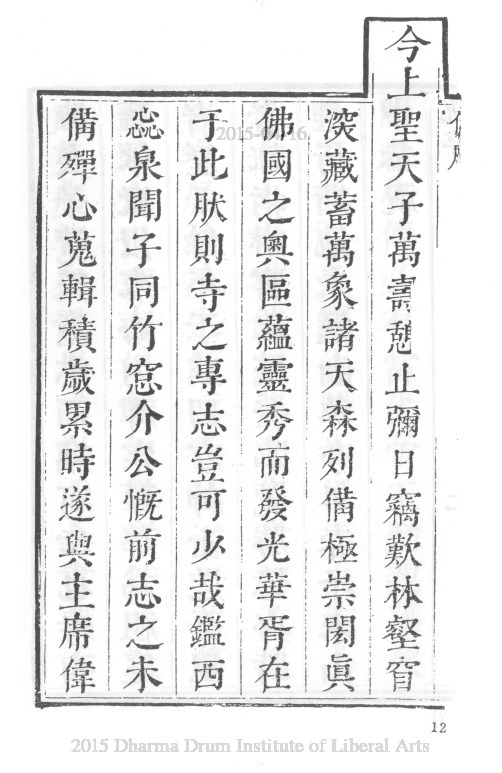 今上聖天子萬壽憩止彌日竊歎林壑窅
深藏蓄萬象諸天森列備極崇閎眞
佛國之奧區蘊靈秀而發光華胥在
于此肰則寺之專志豈可少哉鑑西
惢泉聞子同竹窓介公慨前志之未
備殫心蒐輯積歲累時遂與主席偉
12
2015 Dharma Drum Institute of Liberal Arts